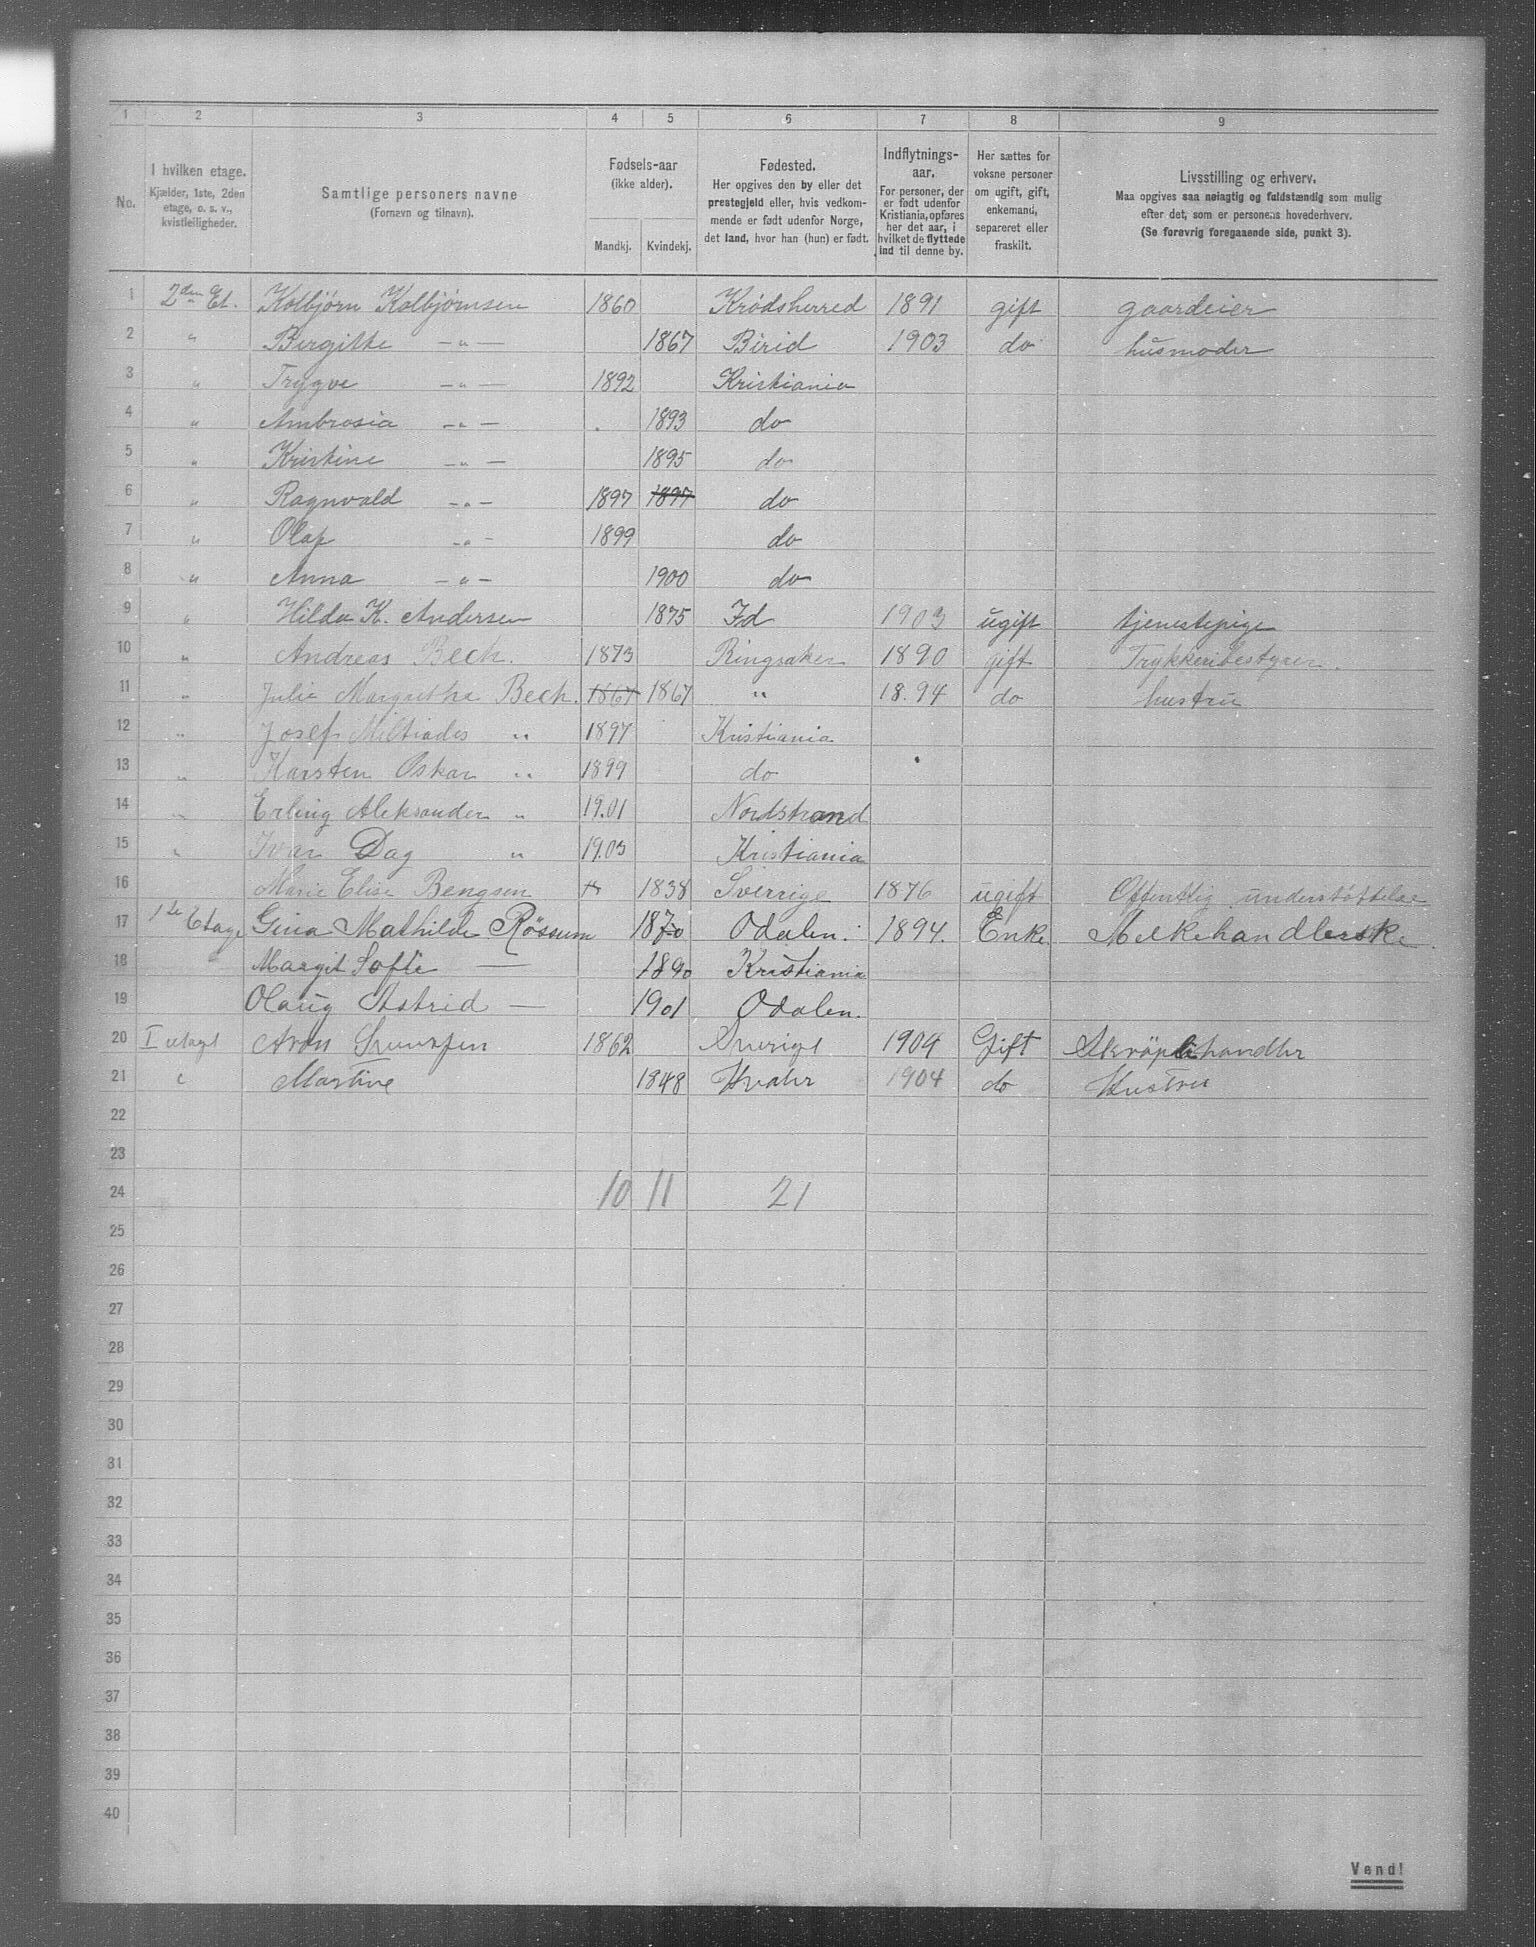 1 2 3 4 5 6 7 8 9
No.
I hvilken etage.
Kjælder, 1ste, 2den
etage, o. s. v.,
kvistleiligheder.
Samtlige personers navne
(Fornavn og tilnavn).
Fødsels-aar
(ikke alder).
Mandkj. Kvindekj.
Fødested.
Her opgives den by eller det
prestegjeld eller, hvis vedkom-
mende er født udenfor Norge,
det land, hvor han (hun) er født.
Indflytnings-
aar.
For personer, der
er født udenfor
Kristiania, opføres
her det aar, i
hvilket de flyttede
ind til denne by.
Her sættes for
voksne personer
om ugift, gift,
enkemand,
separeret eller
fraskilt.
Livsstilling og erhverv.
Maa opgives saa nøiagtig og fuldstændig som mulig
efter det, som er personens hovederhverv.
(Se forøvrig foregaaende side, punkt 3).
1 2den Et. Kolbjørn Kolbjørnsen 1860 Krødsherred 1891 gift gaardeier
2 " Birgitte —"— 1867 Birid 1903 do husmoder
3 " Trygve —"— 1892 Kristiania
4 " Ambrosia —"— 1893 do
5 " Kristine —"— 1895 do
6 " Ragnvald —"— 1897 1897 do
7 " Olaf —"— 1899 do
8 " Anna —"— 1900 do
9 " Hilda K. Andersen 1875 Id 1903 ugift tjenestepige
10 " Andreas Bech. 1873 Ringsaker 1890 gift Trykkeribestyrer.
11 " Julie Margrethe Bech. 1867 1867 " 18.94 do hustru
12 " Josef Miltiades " 1897 Kristiania
13 " Karsten Oskar " 1899 do
14 " Erling Aleksander " 19.01 Nordstrand
15 " Ivar Dag " 19.03 Kristiania
16 Marie Elise Bengsen 1838 Sverrige 1876 ugift Offentlig understøttelse
17 1te Etage Gina Mathilde Røssum 1870 Odalen. 1894. Enke Melkehandlerske.
18 Margit Sofie — 1890 Kristiania
19 Olaug Astrid — 1901 Odalen.
20 I etage Aron 1862 Sverige 1904 Gift
21 " Martine 1848 Hvaler 1904 do Hustru
22
23
24 10 11 21
25
26
27
28
29
30
31
32
33
34
35
36
37
38
39
40
Vend!